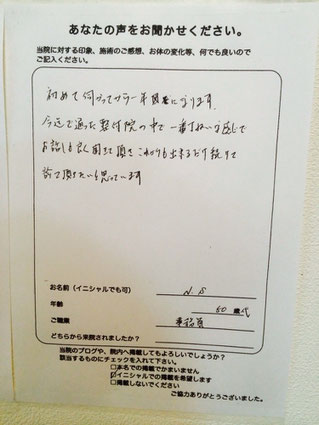 あなたの声をお聞かせください。
当院に対する印象、施術のご感想、お体の変化等、何でも良いので
ご記入ください。
初めて伺ってから一年目になります
今まで通った整骨院の中で一番ていねいな感じで
お話しも良く聞いて頂き これからも出来るだけ続けて
診て頂きたいと思っています
お名前(イニシャルでも可) N.S
年齢 50歳代
ご職業
どちらから来院されましたか?
当院のブログや、院内へ掲載してもよろしいでしょうか?
該当するものにチェックを入れて下さい。
□本名での掲載でかまいません
☑イニシャルでの掲載を希望します
□掲載しないでください
ご協力ありがとうございました。